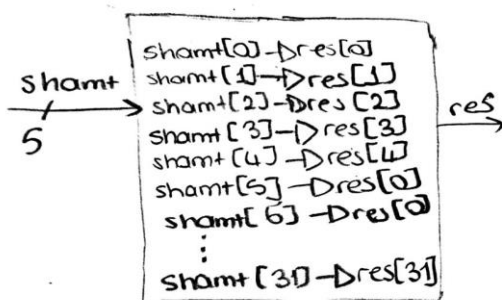 shamt
5
shamt[0]-Dres[0]
shamt[1]-Dres[1]
shamt[2]-Dres[2]
shamt[3]-Dres[3]
shamt[4]-Dres[4]
shamt[5]-Dres[0]
shamt[6]-Dres[0]
⋮
shamt[31]-Dres[31]
res